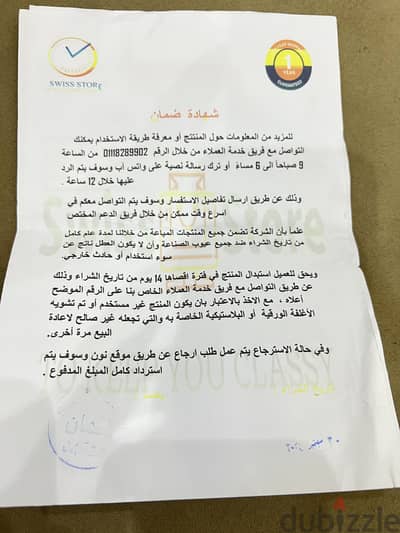 SWISS STORE
1
YEAR
GUARANTEE
شهادة ضمان
للمزيد من المعلومات حول المنتتج أو معرفة طريقة الاستخدام يمكنك
التواصل مع فريق خدمة العملاء من خلال الرقم 01118289902 من الساعة
9 صباحاً الى 6 مساءً أو ترك رسالة نصية على واتس آب وسوف يتم الرد
عليها خلال 12 ساعة .
وذلك عن طريق ارسال تفاصيل الاستفسار وسوف يتم التواصل معكم في
اسرع وقت ممكن من خلال فريق الدعم المختص
علماً بأن الشركة تضمن جميع المنتجات المباعة من خلالنا لمدة عام كامل
من تاريخ الشراء ضد جميع عيوب الصناعة وأن لا يكون العطل ناتج عن
سوء استخدام أو حادث خارجي.
ويحق للعميل استبدال المنتج في فترة اقصاها 14 يوم من تاريخ الشراء وذلك
عن طريق التواصل مع فريق خدمة العملاء الخاص بنا على الرقم الموضح
أعلاه ، مع الاخذ بالاعتبار بان يكون المنتج غير مستخدم أو تم تشويه
الأغلفة الورقية أو البلاستيكية الخاصه به والتي تجعله غير صالح لاعادة
البيع مرة أخرى.
وفي حالة الاسترجاع يتم عمل طلب ارجاع عن طريق موقع نون وسوف يتم
استرداد كامل المبلغ المدفوع .
KEEP YOU CLASSY
dubizzle